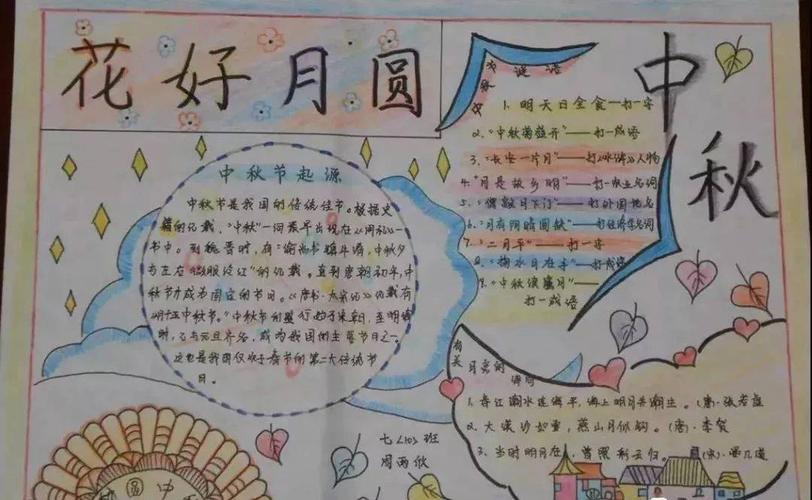 花好月圆
中秋
中秋节起源
中秋节是我国的传统佳节。根据史
籍的记载，"中秋"一词最早出现在《周礼》一
书中。到魏晋时，有"谕尚书镇牛渚，中秋夕
与左右微服泛江"的记载。直到唐朝初年，中
秋节才成为固定的节日。《唐书·太宗记》记载有
"八月十五中秋节"。中秋节的盛行始于宋朝，至明清
时，已与元旦齐名，成为我国的主要节日之一。
这也是我国仅次于春节的第二大传统节
日。
谜语
1. 明天日全食——打一字
2. "中秋菊盛开"——打一成语
3. "长安一片月"——打《水浒》人物
4. "月是故乡明"——打一
5. "僧敲月下门"——打外国地名
6. "月有阴晴圆缺"——打经济学名词
7. "二月平"——打一字
8. "掬水月在手"——打一成语
9. "中秋
打一成语
有关
月亮的
诗句
1. 春江潮水连海平，海上明月共潮生。(唐·张若虚
2. 大漠沙如雪，燕山月似钩。(唐·李贺
3. 当时明月在，曾照彩云归。(宋·晏几道
七〈10〉班
周雨欣
圆中